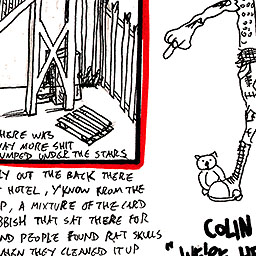 HERE WAS
WAY MORE SHIT
DUMPED UNDER THE STAIRS
LY OUT THE BACK THERE
HOTEL, Y'KNOW FROM THE
P, A MIXTURE OF THE CARD
BBISH THAT SAT THERE FOR
ND PEOPLE FOUND RAT SKULLS
WHEN THEY CLEANED IT UP
COLIN
"WE'RE HE